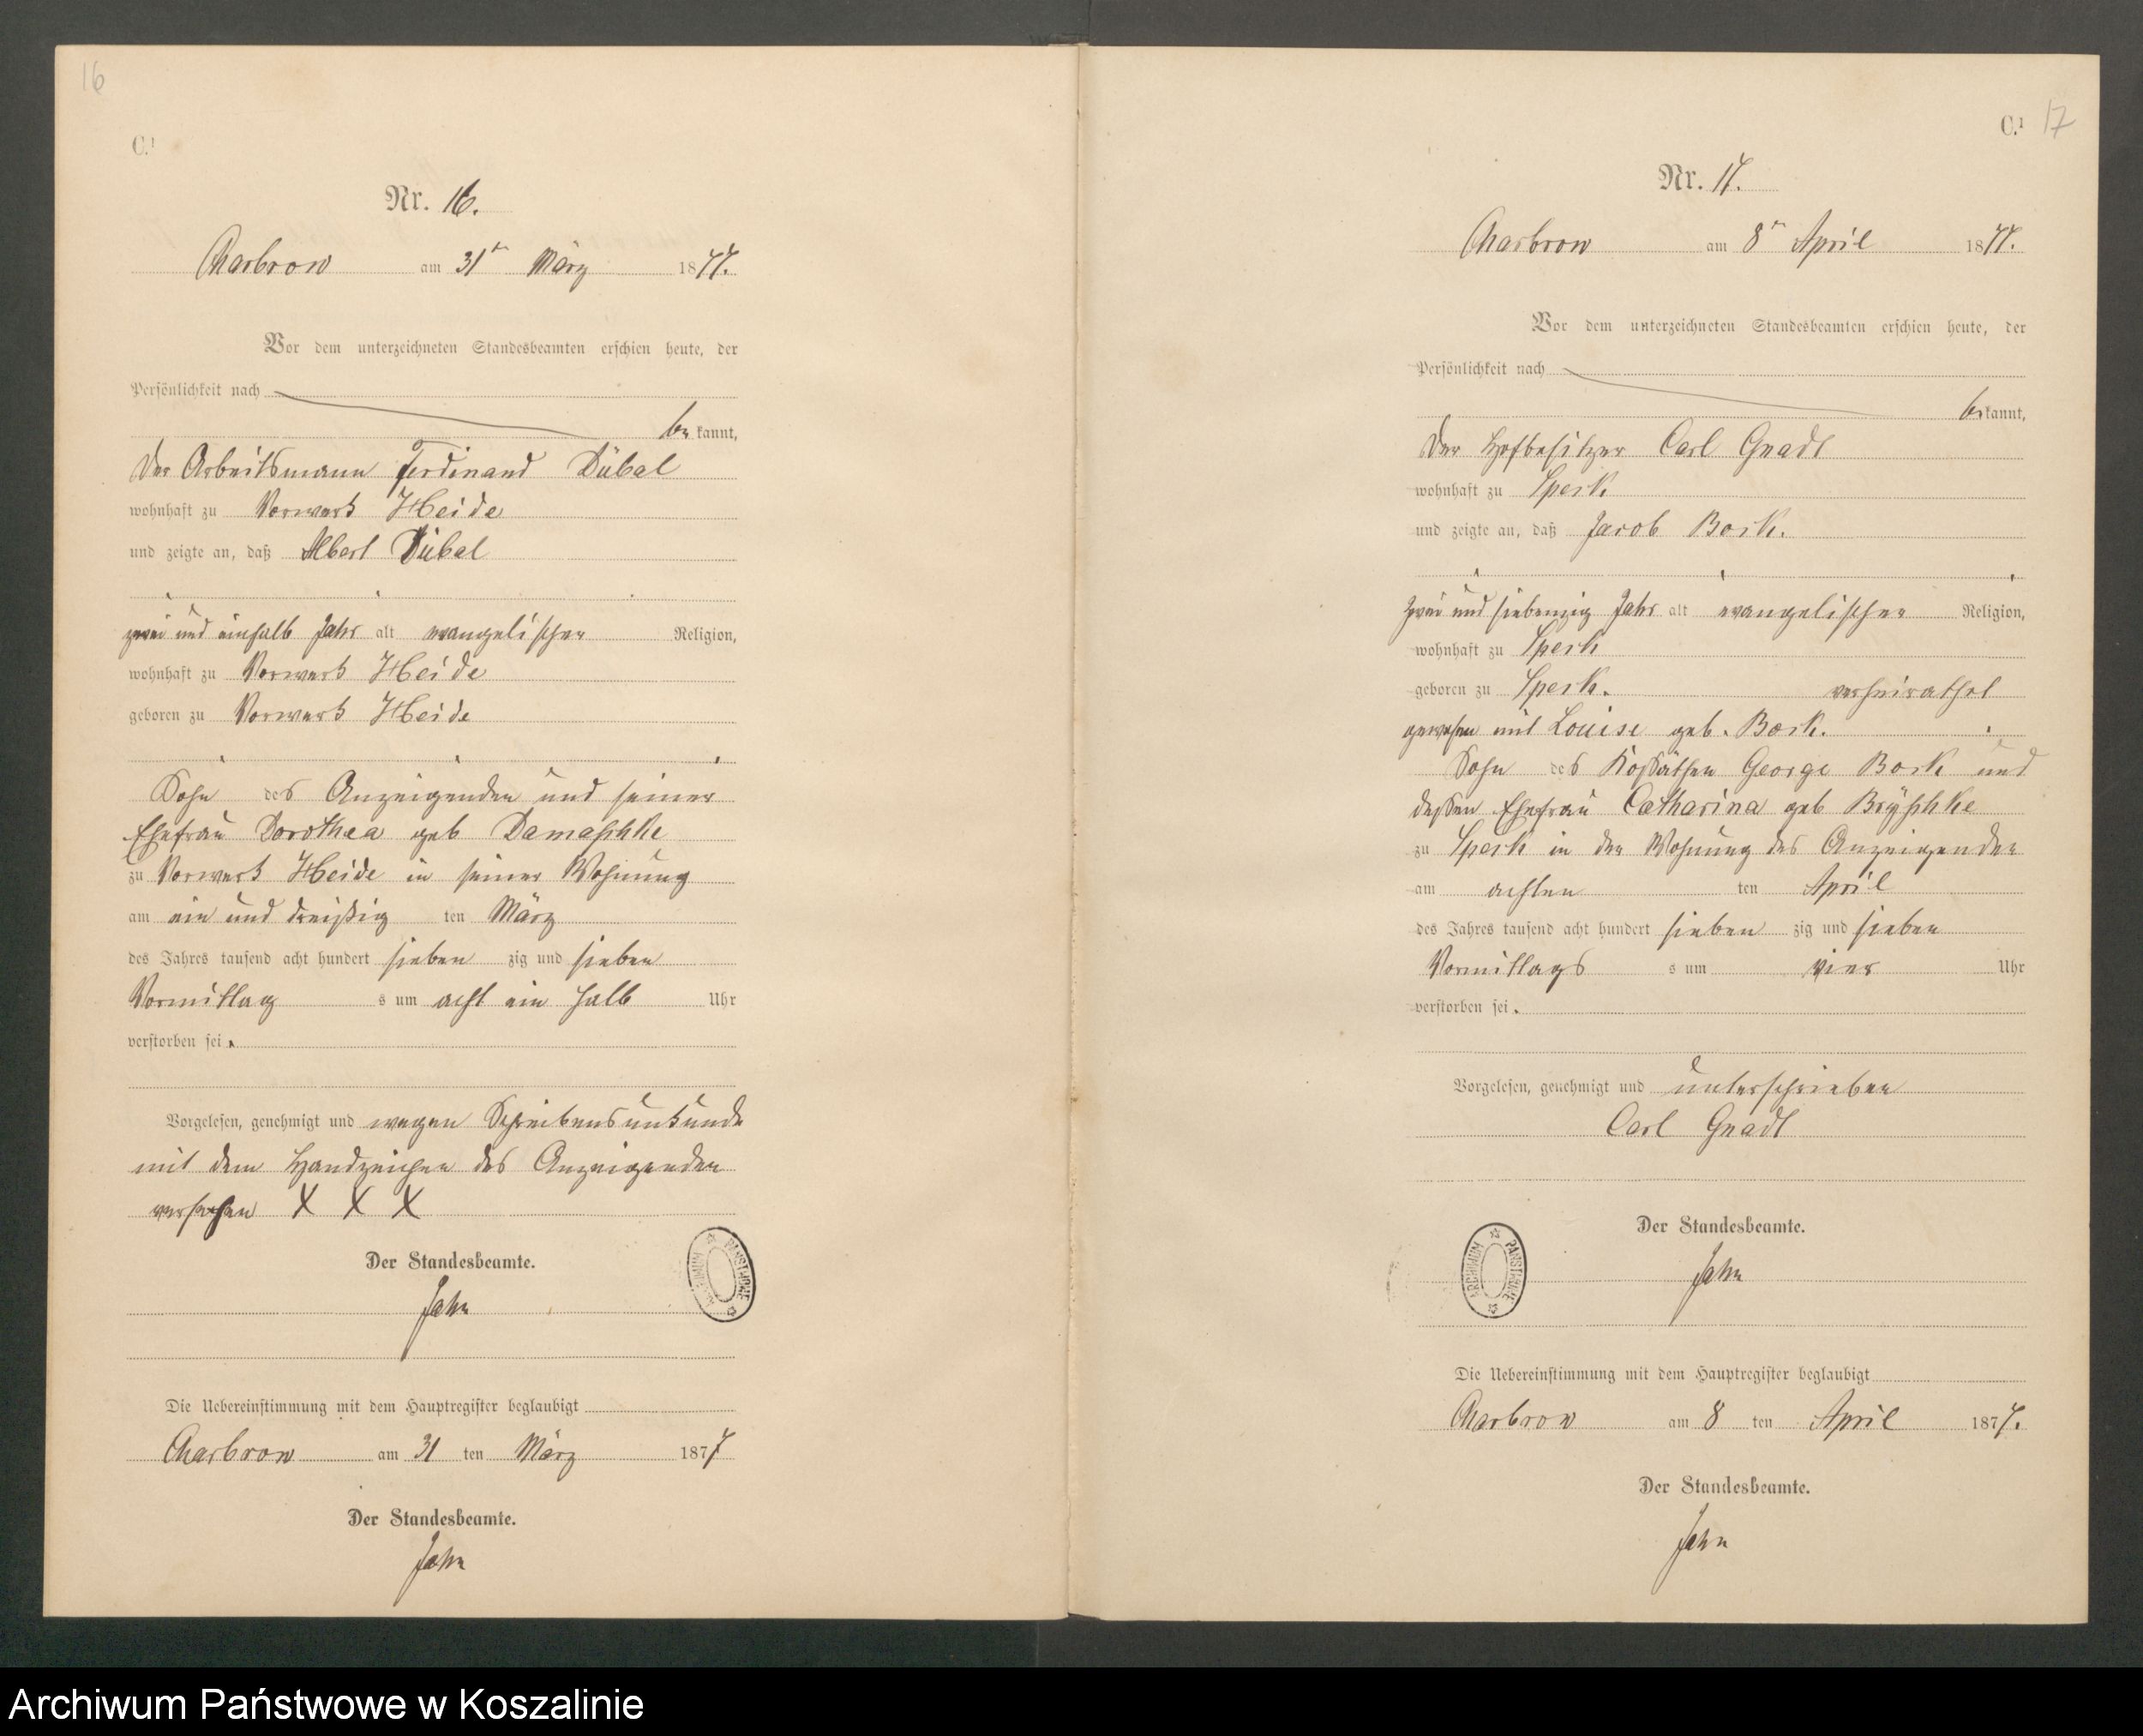 16
C.¹
Nr. 16.
Charbrow am 31ten März 1877.
Vor dem unterzeichneten Standesbeamten erschien heute, der
Persönlichkeit nach
be kannt,
der Arbeitsmann Ferdinand Dübal
wohnhaft zu Vorwerk Heide
und zeigte an, daß Albert Dübal
zwei und einhalb Jahr alt evangelischer Religion,
wohnhaft zu Vorwerk Heide
geboren zu Vorwerk Heide
Sohn des Anzeigenden und seiner
Ehefrau Dorothea geb Damaschke
zu Vorwerk Heide in seiner Wohnung
am ein und dreißig ten März
des Jahres tausend acht hundert sieben zig und sieben
Vormittag s um acht ein halb Uhr
verstorben sei.
Vorgelesen, genehmigt und wegen Schreibensunkunde
mit dem Handzeichen des Anzeigenden
versehen X X X
Der Standesbeamte.
Jahn
ARCHIWUM PAŃSTWOWE
Die Uebereinstimmung mit dem Hauptregister beglaubigt
Charbrow am 31 ten März 1877
Der Standesbeamte.
Jahn
C.¹ 17
Nr. 17.
Charbrow am 8ten April 1877.
Vor dem unterzeichneten Standesbeamten erschien heute, der
Persönlichkeit nach
be kannt,
der Hofbesitzer Carl Gnadt
wohnhaft zu Speck
und zeigte an, daß Jacob Bork.
zwei und siebenzig Jahr alt evangelischer Religion,
wohnhaft zu Speck
geboren zu Speck. verheirathet
gewesen mit Louise geb. Bork.
Sohn des Kossäthen George Bork und
dessen Ehefrau Catharina geb
zu Speck in der Wohnung des Anzeigenden
am achten ten April
des Jahres tausend acht hundert sieben zig und sieben
Vormittags s um vier Uhr
verstorben sei.
Vorgelesen, genehmigt und unterschrieben
Carl Gnadt
Der Standesbeamte.
Jahn
ARCHIWUM PAŃSTWOWE
Die Uebereinstimmung mit dem Hauptregister beglaubigt
Charbrow am 8 ten April 1877.
Der Standesbeamte.
Jahn
Archiwum Państwowe w Koszalinie